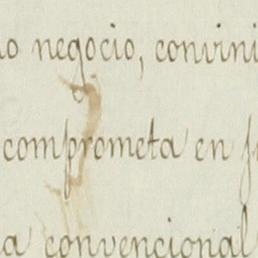 o negocio, convini
comprometa en f
a convencional